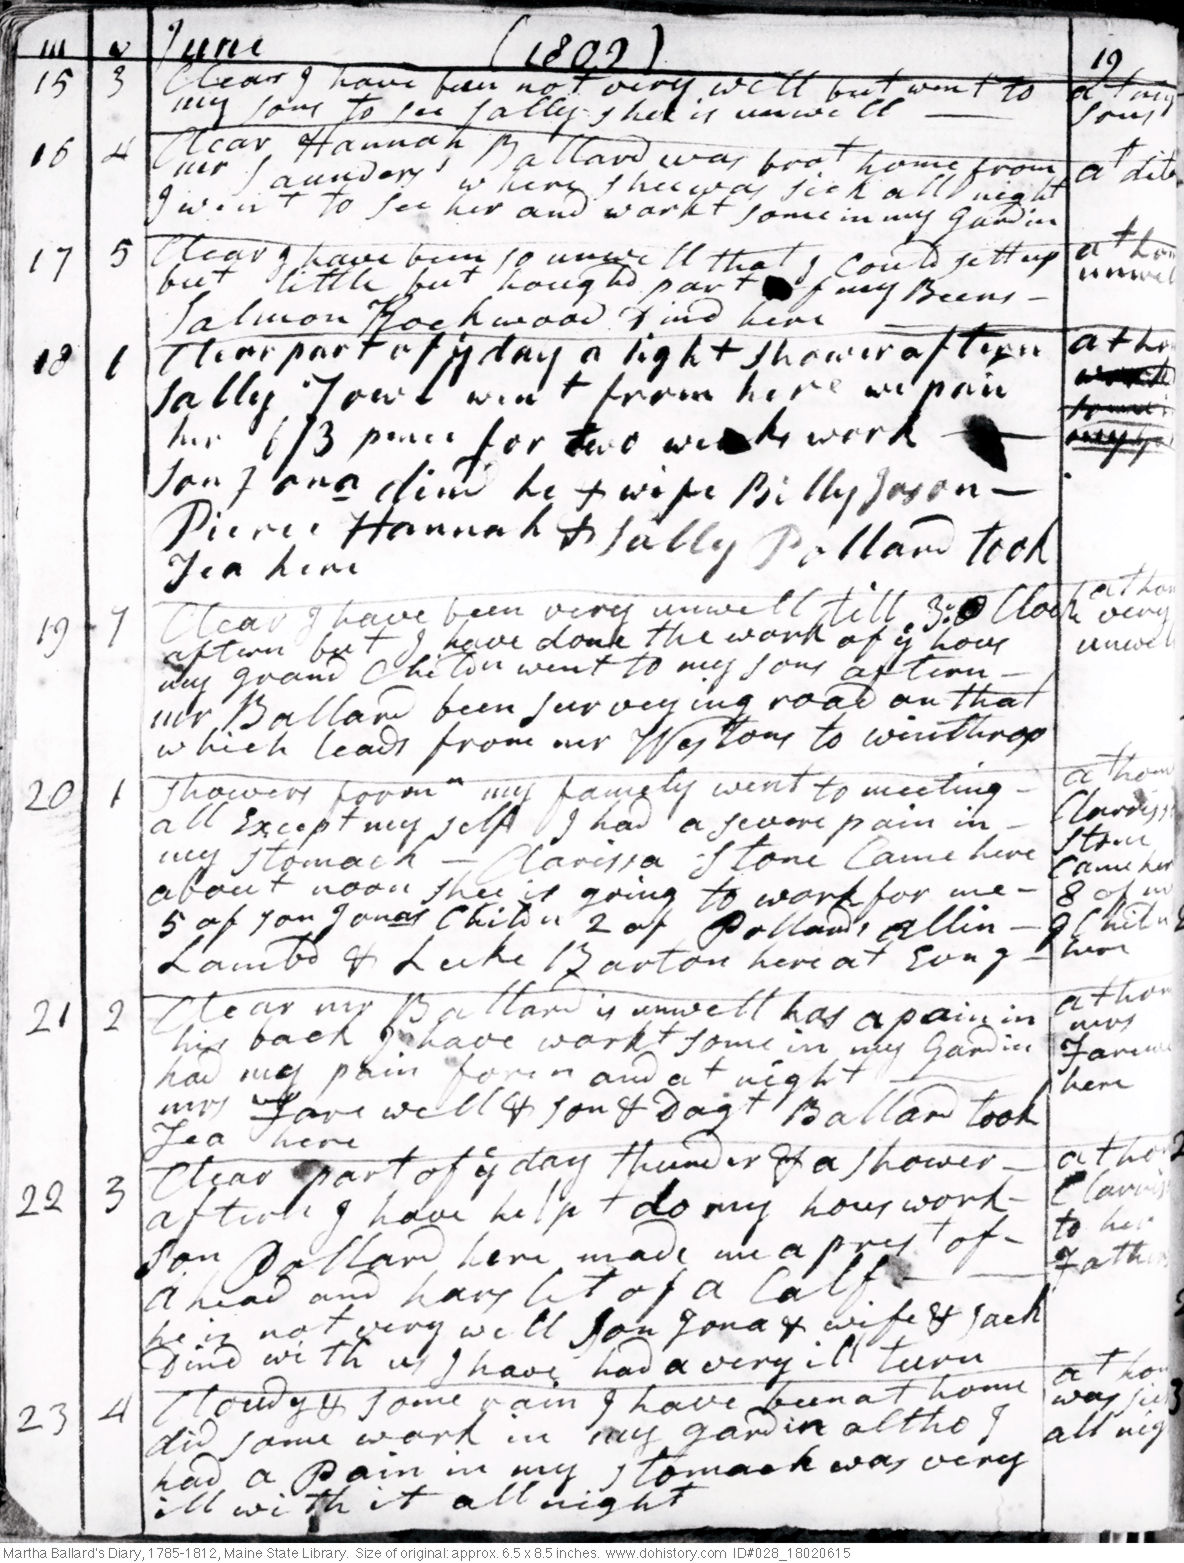 m w June (1802) 19
15 3 Clear I have been not very well but went to
my sons to see Sally shee is unwell —
at my
sons
16 4 Clear Hannah Ballard was brot home from
mr Saunders' where shee was sick all night
I went to see her and workt some in my Gardin
at dito
17 5 Clear I have been so unwell that I Could sett up
but little but houghd part of my Beens -
Salmon Rockwood Dind here
at hom
unwel
18 1 Clear part of ye day a light shower aftern
Sally Towl went from here we paid
her 6/3 pence for two weeks work —
son Jona dind he & wife Billy Jason —
Pierce Hannah & Sally Pollard took
Tea here
at hom
19 7 Clear I have been very unwell till 3:O Clock
aftern but I have done the work of ye hous
my grand Childn went to my sons aftern -
mr Ballard been surveying road on that
which leads from mr Westons to winthrop
at hom
very
unwell
20 1 Showers forrnn my famely went to meeting -
all Except my self I had a severe pain in -
my stomach — Clarissa Stone Came here
about noon shee is going to work for me -
5 of son Jonas Childn 2 of Pollards allin -
Lambd & Luke Barton here at Evng -
at hom
Clariss
Stone
Came her
8 of m
g Childn
here
21 2 Clear mr Ballard is unwell has a pain in
his back I have workt some in my Gardin
had my pain foren and at night —
mrs Farewell & son & Dagt Ballard took
Tea here
at hom
mrs
Farewe
here
22 3 Clear part of ye day thunder & a shower —
aftern I have helpt do my hous work -
son Pollard here made me a prest of -
A head and harslet of a Calf — —
he is not very well son Jona & wife & Jack
Dind with us I have had a very ill turn
at hom
Clariss
to her
Fathers
23 4 Cloudy & some rain I have been at home
did some work in my gardin altho I
had a Pain in my stomach was very
ill with it all night
at hom
was sic
all nig
Martha Ballard's Diary, 1785-1812, Maine State Library. Size of original: approx. 6.5 x 8.5 inches. www.dohistory.com ID#028_18020615